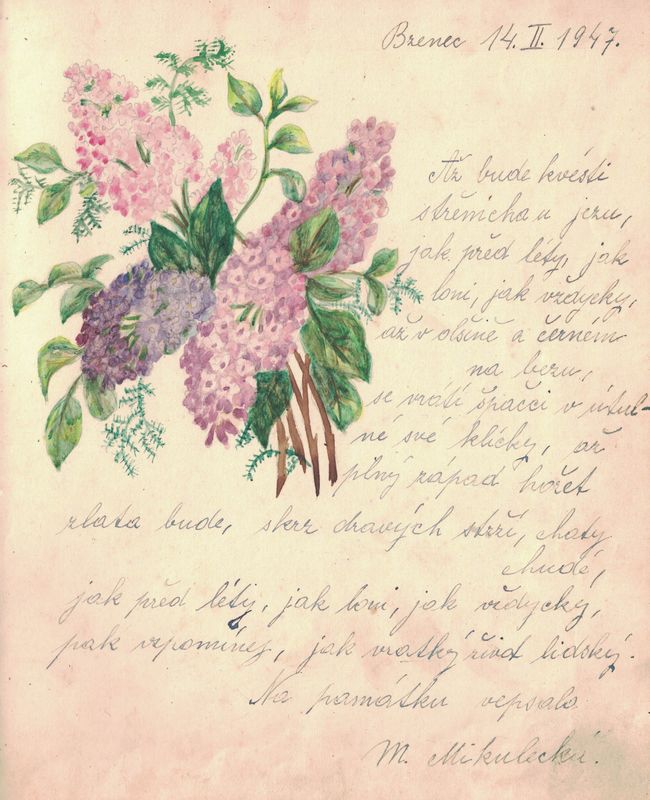 Bzenec 14. II. 1947.
Až bude kvésti
střemcha u jezu,
jak před léty, jak
loni, jak vždycky,
až v olšině a černém
na bezu,
se vrátí špačci v útul-
né své klícky, až
plný západ hořet
zlata bude, skrz dravých strží, chaty
chudé,
jak před léty, jak loni, jak vždycky,
pak vzpomínej, jak vratký život lidský.
Na památku vepsala
M. Mikulecká.